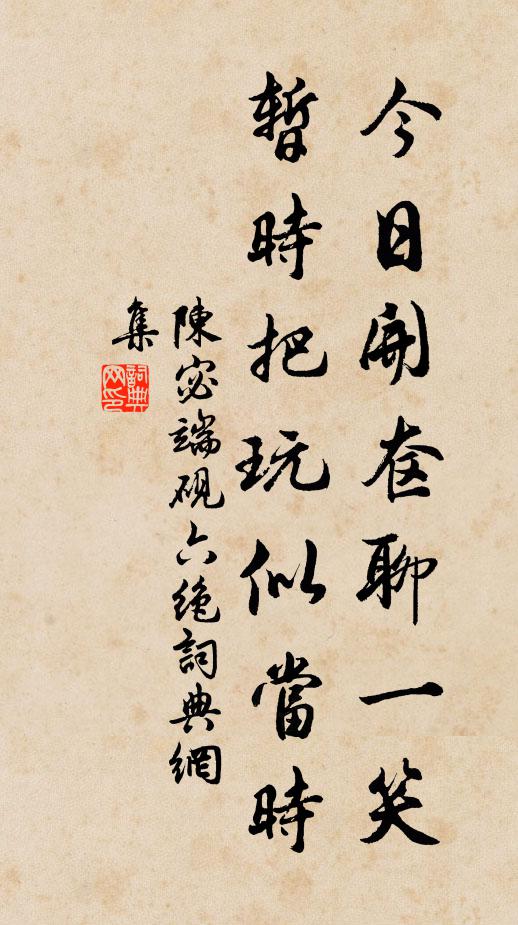 今日開奁聊一笑
暫時把玩似當時
陳宓端硯六絶詞典網
集
詞典
网印